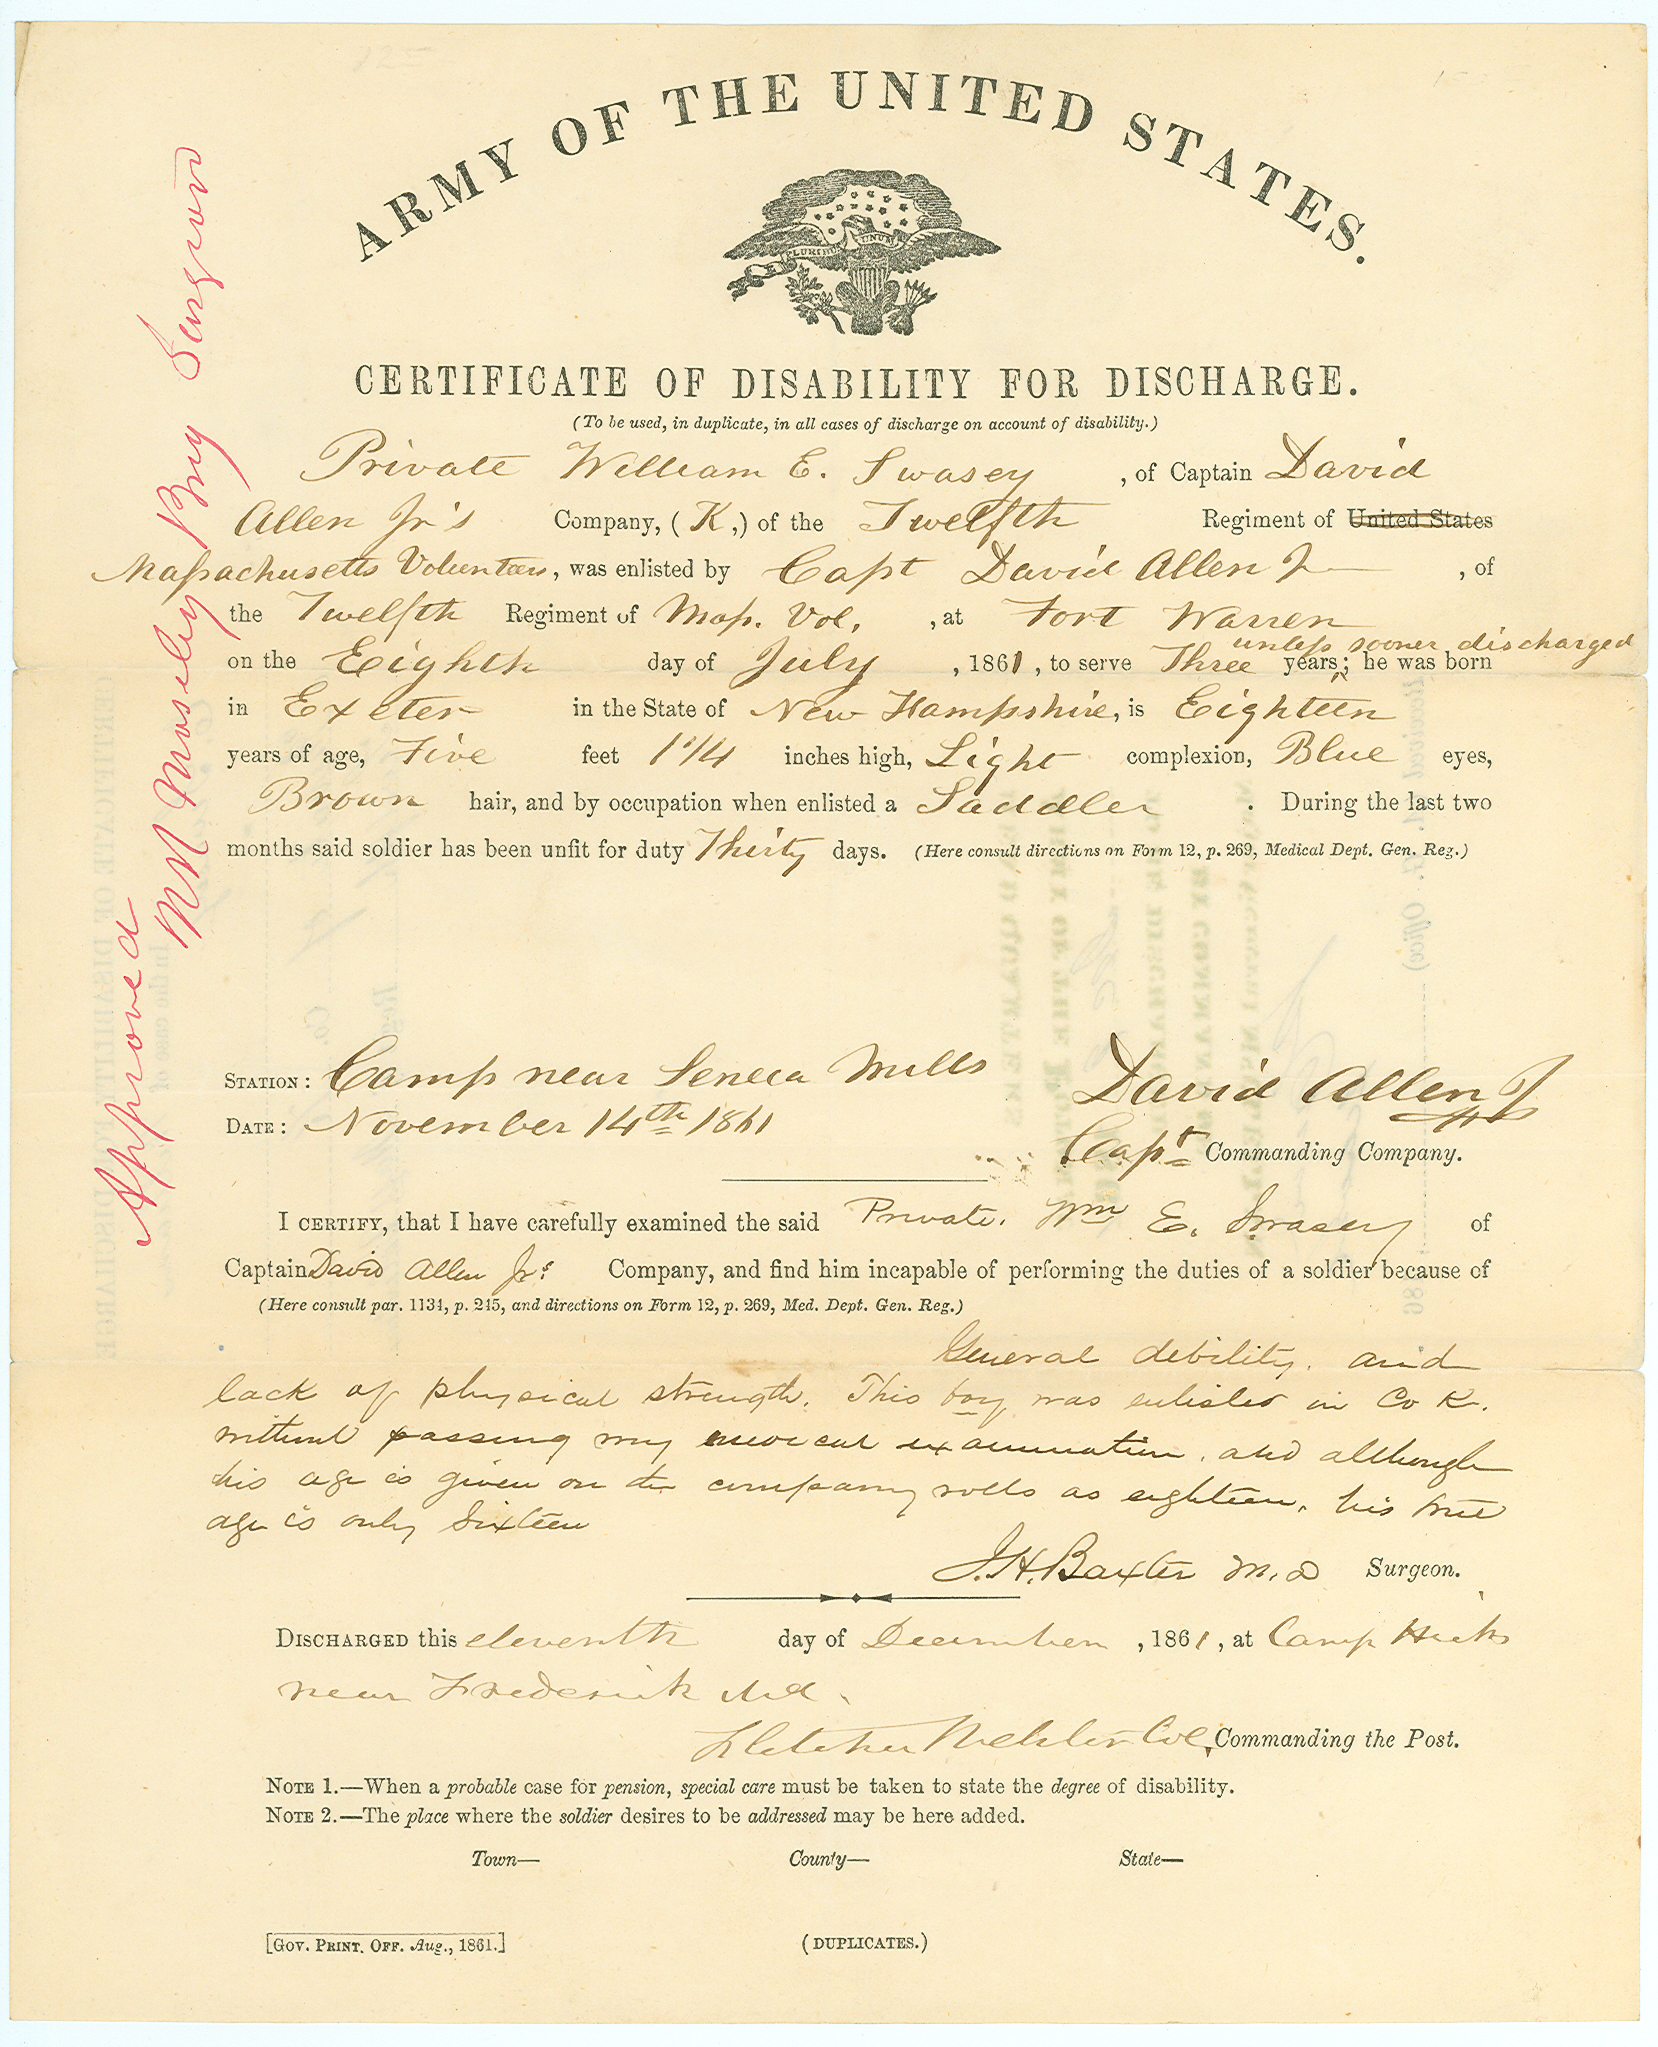 ARMY OF THE UNITED STATES.
PLURIBUS UNUM
CERTIFICATE OF DISABILITY FOR DISCHARGE.
(To be used, in duplicate, in all cases of discharge on account of disability.)
Private William E. Swasey, of Captain David
Allen Jr's Company, (K,) of the Twelfth Regiment of United States
Massachusetts Volunteers, was enlisted by Capt David Allen Jr, of
the Twelfth Regiment of Mass. Vol., at Fort Warren
unless sooner discharged
on the Eighth day of July, 1861, to serve Three years; he was born
in Exeter in the State of New Hampshire, is Eighteen
years of age, Five feet 1 3/4 inches high, Light complexion, Blue eyes,
Brown hair, and by occupation when enlisted a Saddler. During the last two
months said soldier has been unfit for duty Thirty days. (Here consult directions on Form 12, p. 269, Medical Dept. Gen. Reg.)
STATION: Camp near Seneca Mills
David Allen Jr
DATE: November 14th 1861
Capt Commanding Company.
I CERTIFY, that I have carefully examined the said Private. Wm E. Swasey of
Captain David Allen Jrs Company, and find him incapable of performing the duties of a soldier because of
(Here consult par. 1134, p. 245, and directions on Form 12, p. 269, Med. Dept. Gen. Reg.)
General debility, and
lack of physical strength. This boy was enlisted in Co K.
without passing my medical examination, and although
his age is given on the company rolls as eighteen, his true
age is only sixteen
J. H. Baxter M.D Surgeon.
DISCHARGED this eleventh day of December, 1861, at Camp Hicks
near Frederick Md.
Fletcher Webster Col. Commanding the Post.
NOTE 1.—When a probable case for pension, special care must be taken to state the degree of disability.
NOTE 2.—The place where the soldier desires to be addressed may be here added.
Town— County— State—
[GOV. PRINT. OFF. Aug., 1861.] (DUPLICATES.)
Approved
Moseley Brig Surgeon